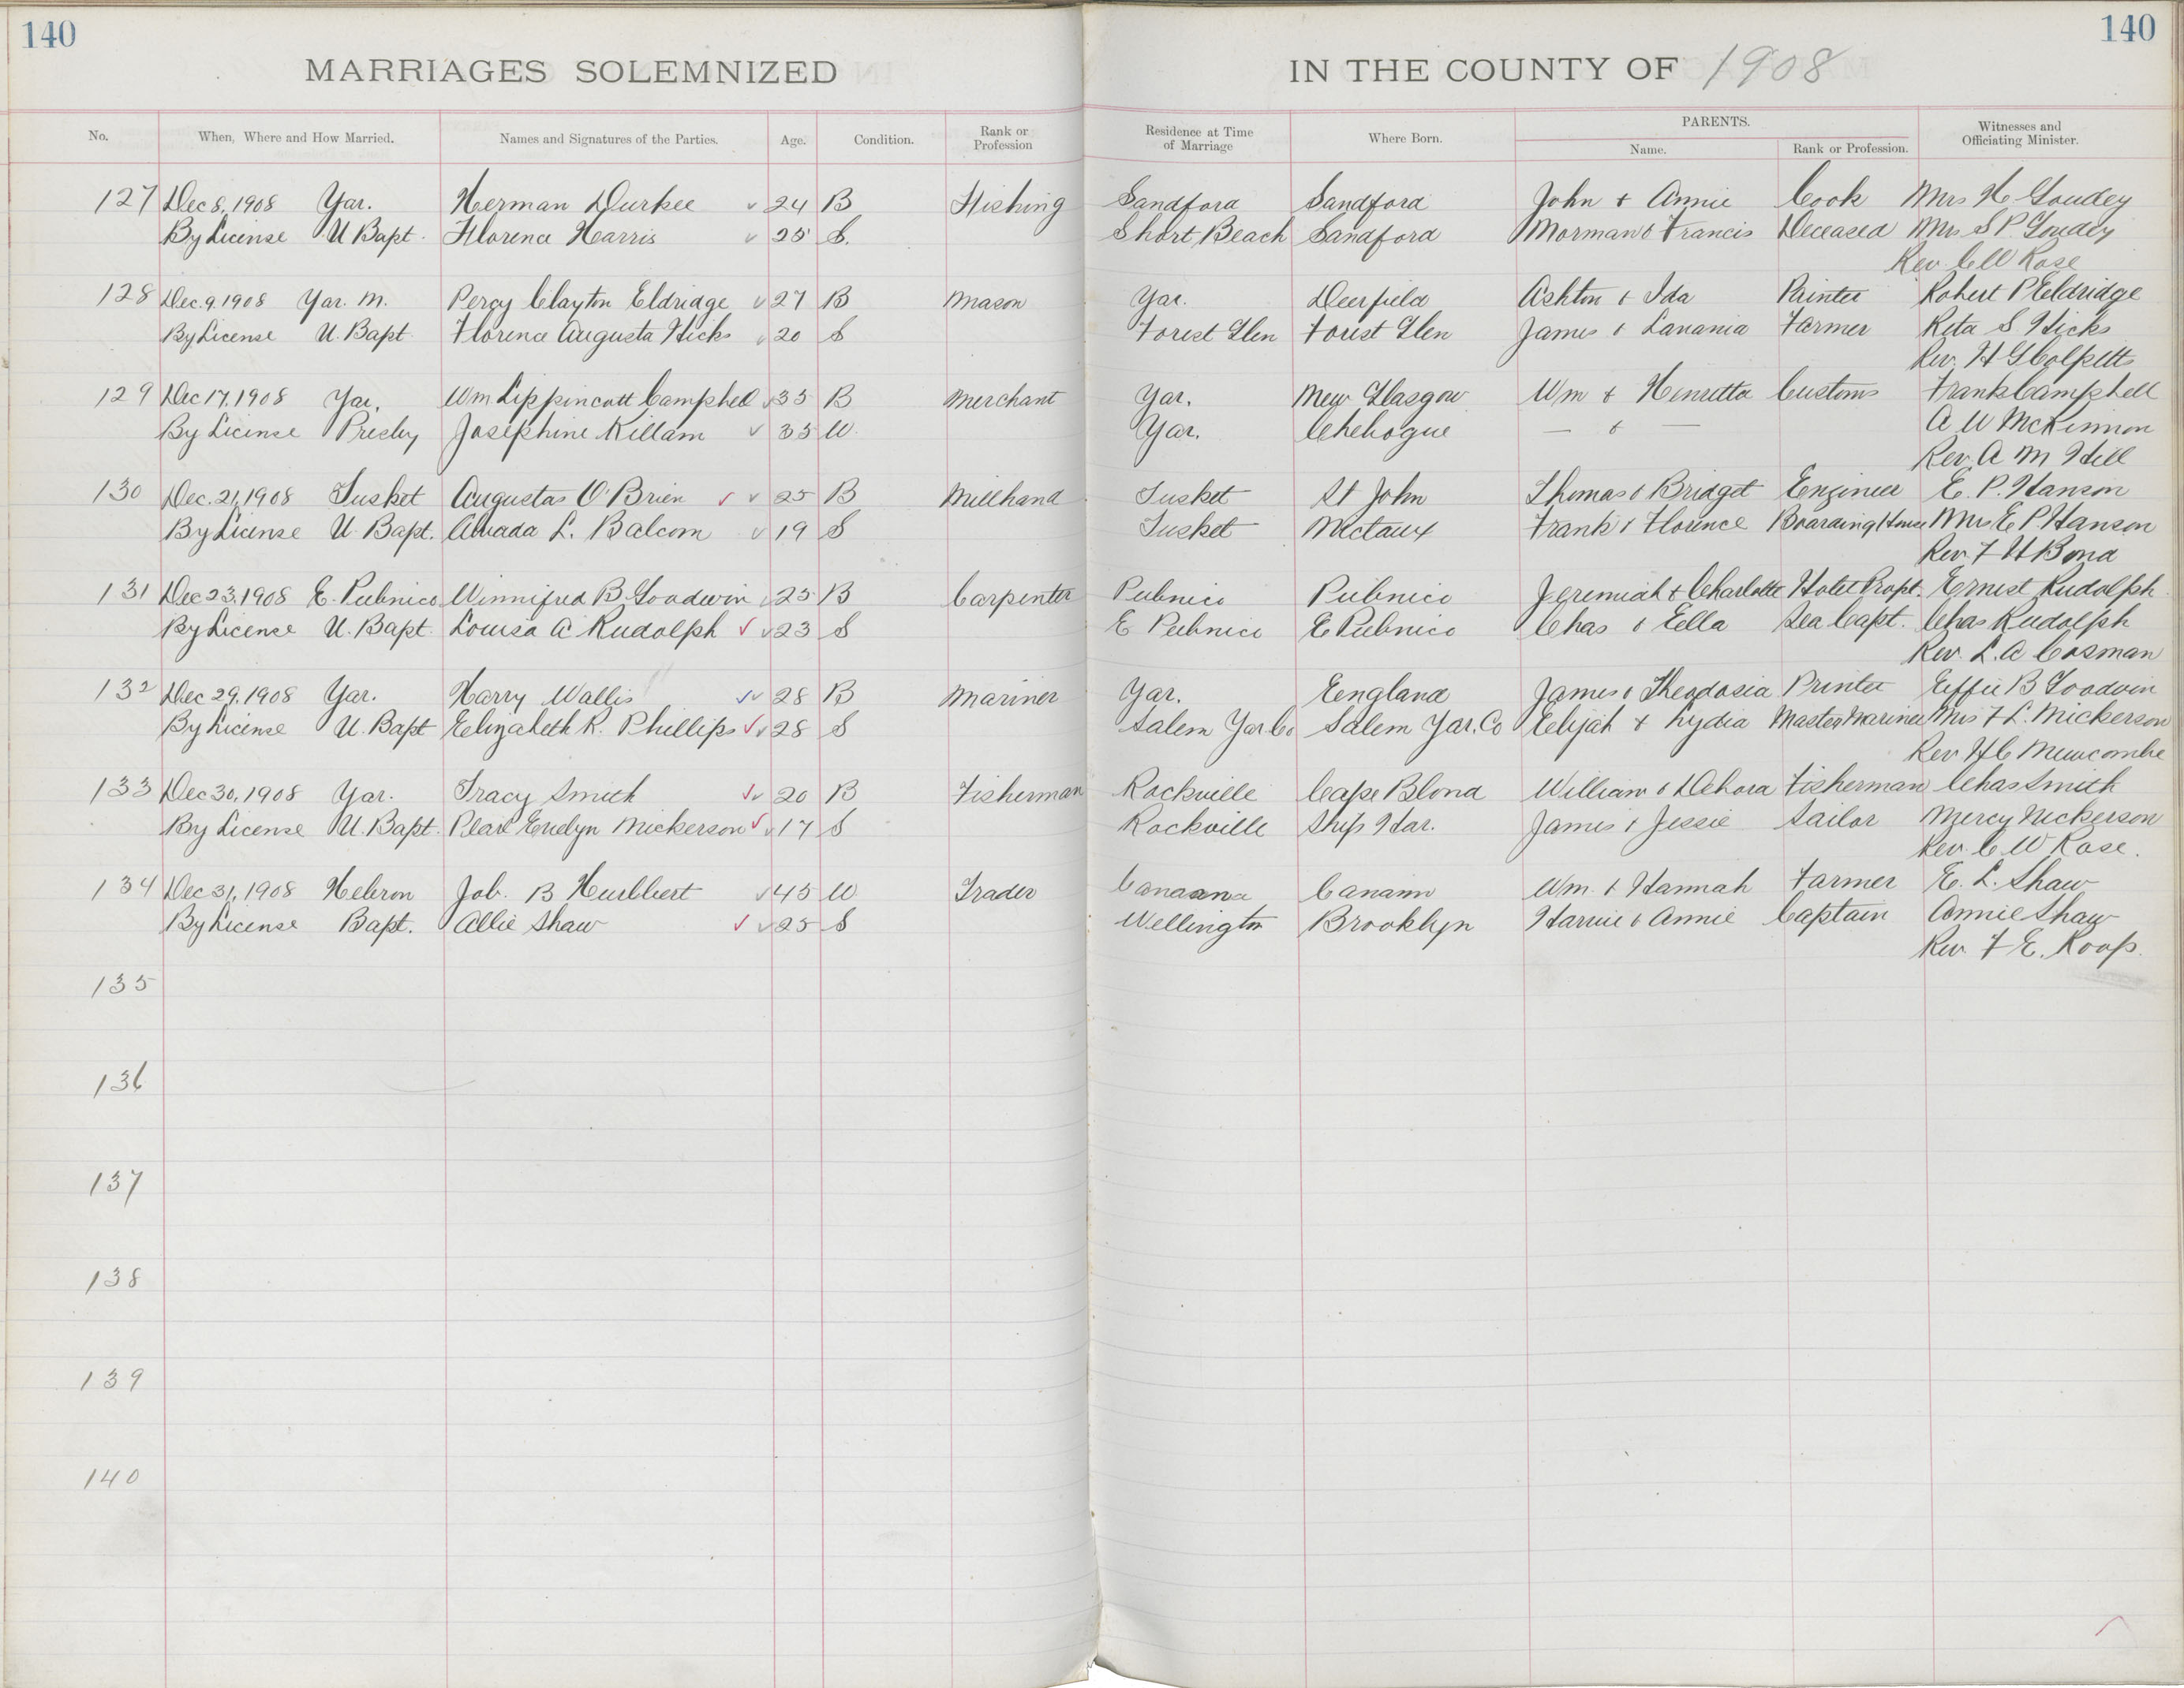 140 140
MARRIAGES SOLEMNIZED IN THE COUNTY OF 1908
No. When, Where and How Married. Names and Signatures of the Parties. Age. Condition. Rank or Profession Residence at Time of Marriage Where Born. PARENTS. Name. Rank or Profession. Witnesses and Officiating Minister.
127 Dec 8, 1908 Yar. Herman Durkee 24 B Fishing Sandford Sandford John & Annie Cook Mrs H Goudey
By License U Bapt. Florence Harris 25 S. Short Beach Sandford Norman & Francis Deceased Mrs S P. Goudey
Rev. C W Rose
128 Dec. 9, 1908 Yar. M. Percy Clayton Eldridge 27 B Mason Yar. Deerfield Ashton & Ida Painter Robert P Eldridge
By License U. Bapt. Florence Augusta Hicks 20 S Forest Glen Forest Glen James & Lavania Farmer Reta S. Hicks
Rev. H G Colpitts
129 Dec 17, 1908 Yar. Wm Lippincott Campbell 35 B Merchant Yar. New Glasgow Wm & Henretta Customs Frank Campbell
By License Presby Josephine Killam 35 W. Yar. Chebogue — & — A W McKinnon
Rev. A M Hill
130 Dec. 21, 1908 Tusket Augustas O'Brien 25 B Millhand Tusket St John Thomas & Bridget Engineer E. P. Hanson
By License U. Bapt. L. Balcom 19 S Tusket Nictaux Frank & Florence Boarding House Mrs E P. Hanson
Rev. F H Bond
131 Dec 23, 1908 E. Pubnico Winnifred B Goodwin 25 B Carpenter Pubnico Pubnico Jeremiah & Charlotte Hotel Propt. Ernest Rudolph
By License U. Bapt. Louisa A Rudolph 23 S E Pubnico E Pubnico Chas & Ella Sea Capt. Chas Rudolph
Rev. L. A Cosman
132 Dec 29, 1908 Yar. Harry Wallis 28 B Mariner Yar. England James & Theodosia Printer Effie B Goodwin
By License U. Bapt Elizabeth R. Phillips 28 S Salem Yar Co Salem Yar. Co Elijah & Lydia Master Mariner Mrs F L. Nickerson
Rev H C Newcombe
133 Dec 30, 1908 Yar. Tracy Smith 20 B Fisherman Rockville Cape Blond William & Debora Fisherman Chas Smith
By License U. Bapt. Pearl Evelyn Nickerson 17 S Rockville Ship Har. James & Jessie Sailor Mercy Nickerson
Rev. C W Rose.
134 Dec 31, 1908 Hebron Job. B Hurlbert 45 W Trader Canaana Canann Wm. & Hannah Farmer E. L. Shaw
By License Bapt. Allie Shaw 25 S Wellington Brooklyn Harvie & Annie Captain Annie Shaw
Rev. F E. Roop.
135
136
137
138
139
140